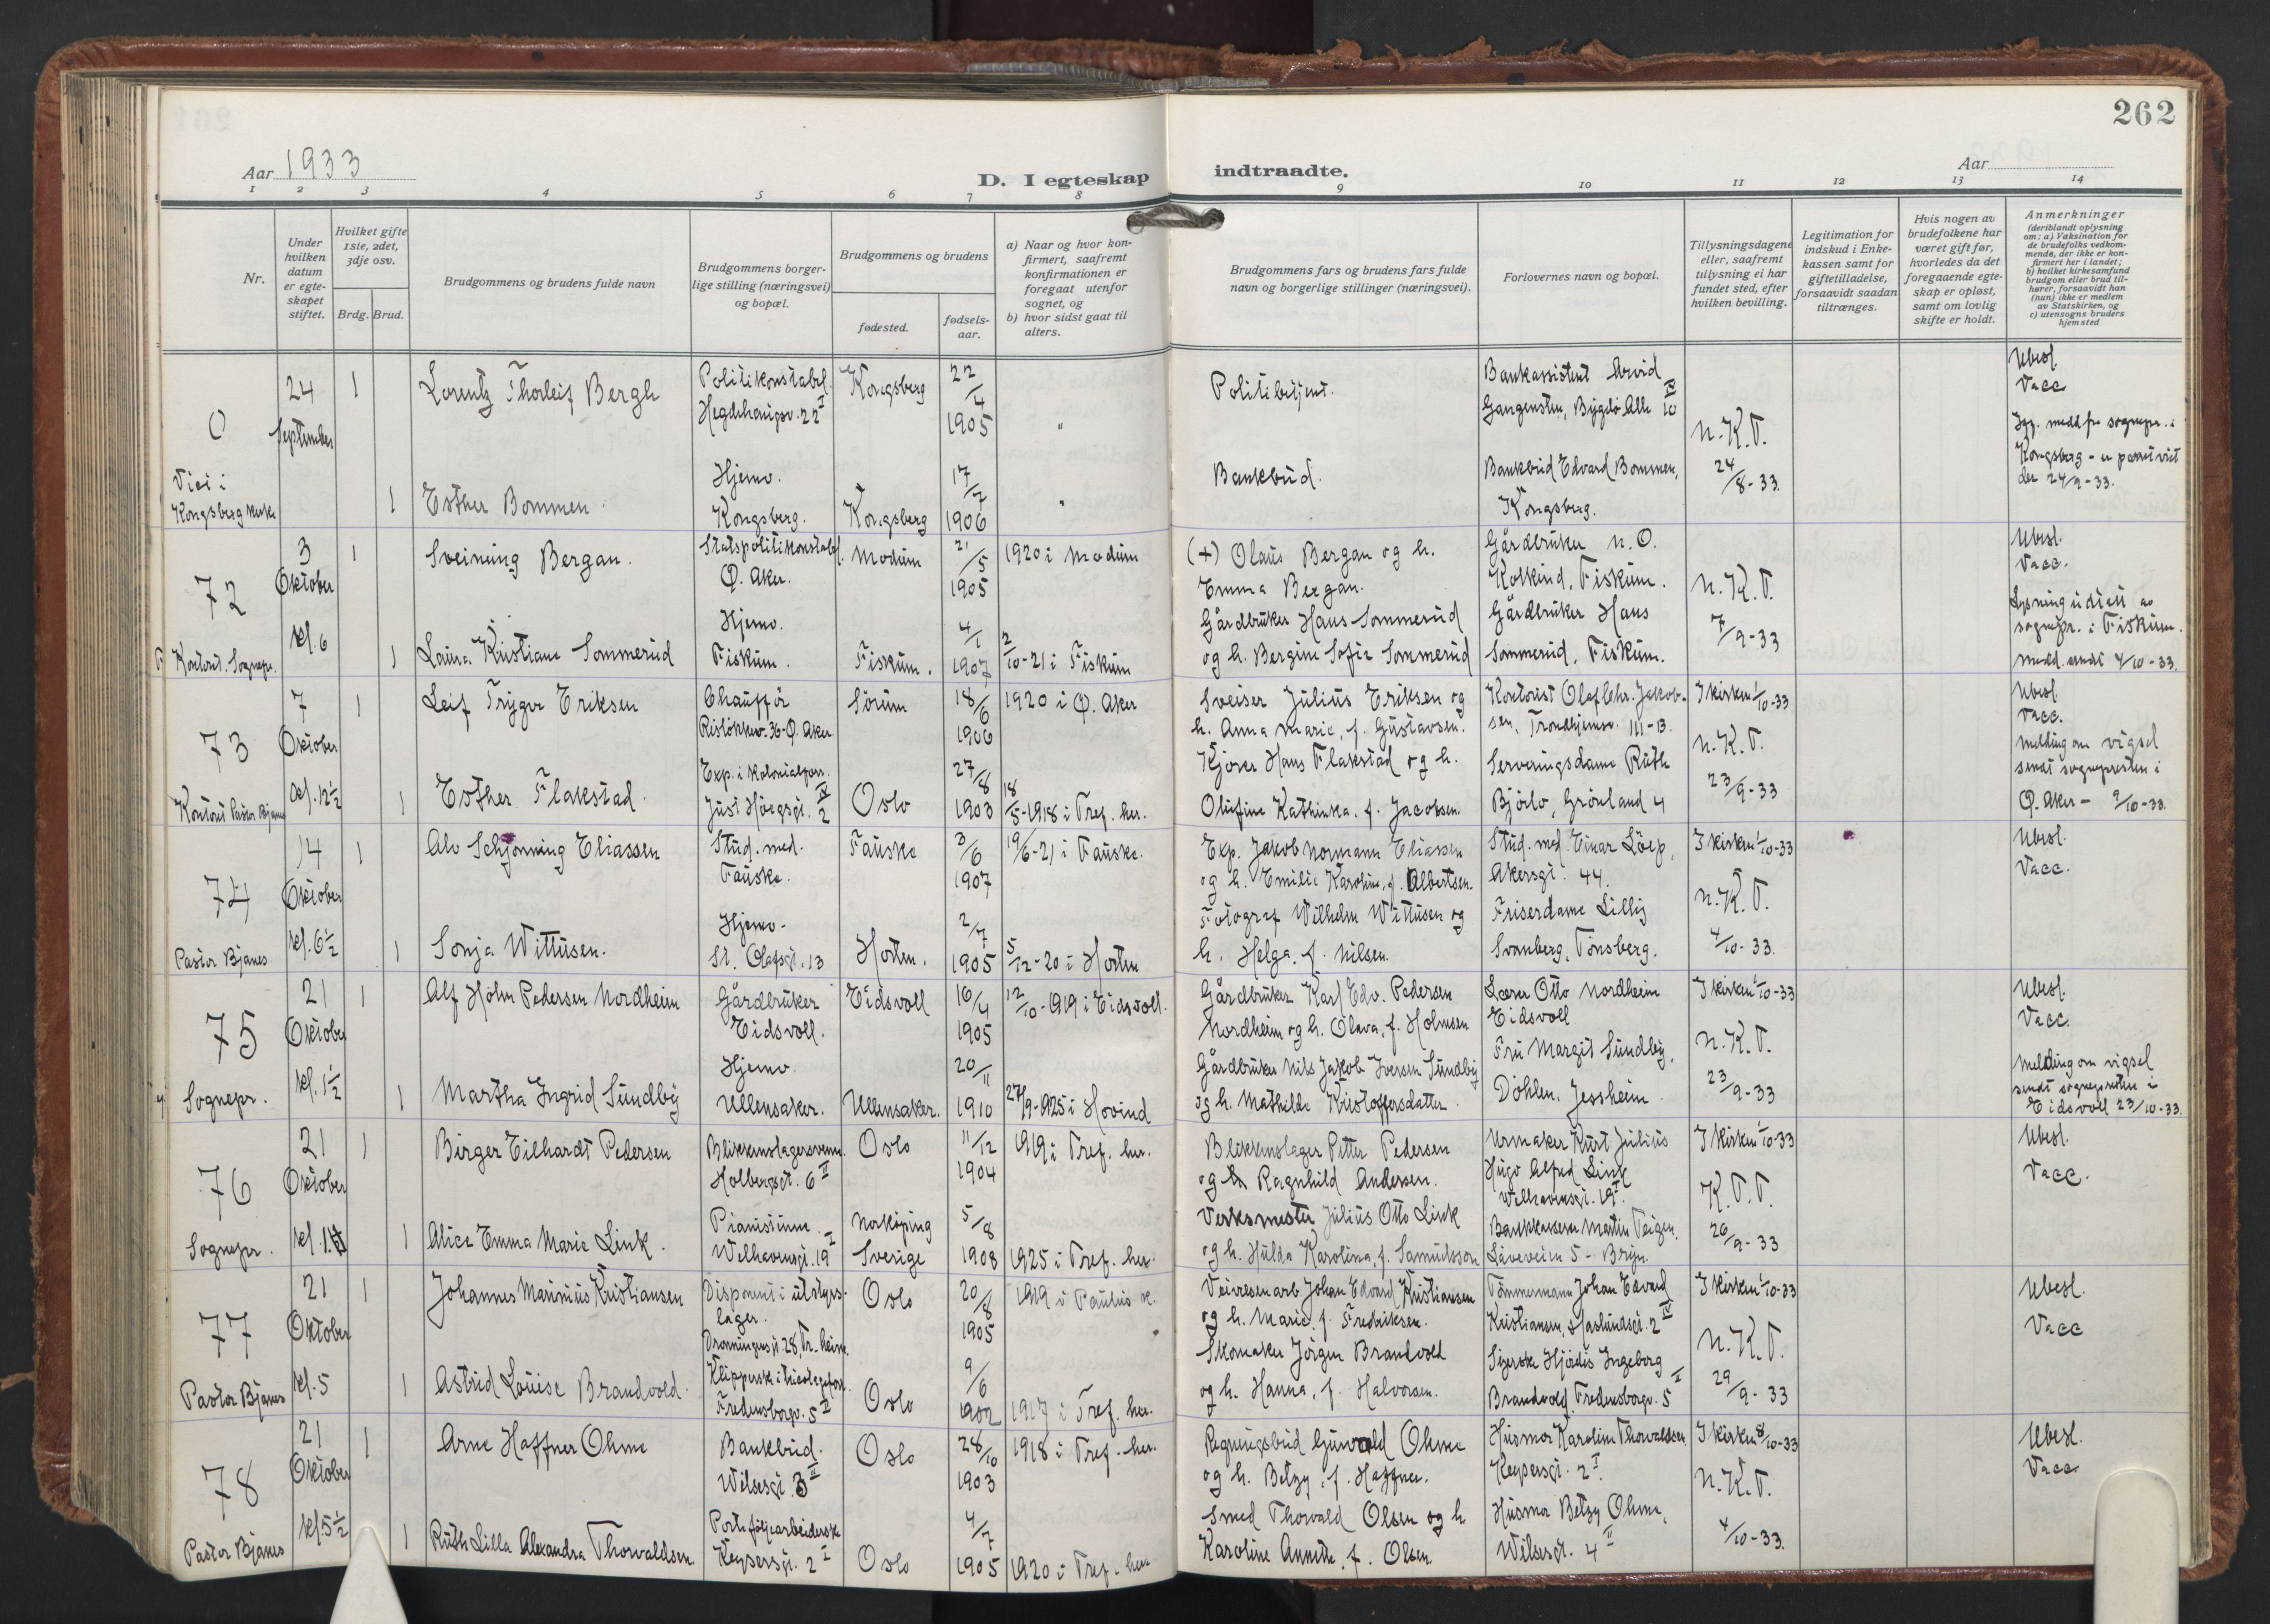 262
Aar 1933
D. I egteskap indtraadte.
Aar
1 2 3 4 5 6 7 8 9 10 11 12 13 14
Nr.
Under hvilken datum er egte-skapet stiftet.
Hvilket gifte 1ste, 2det, 3dje osv.
Brdg. Brud.
Brudgommens og brudens fulde navn
Brudgommens borger-lige stilling (næringsvei) og bopæl.
Brudgommens og brudens
fødested.
fødsels-aar.
a) Naar og hvor kon-firmert, saafremt konfirmationen er foregaat utenfor sognet, og
b) hvor sidst gaat til alters.
Brudgommens fars og brudens fars fulde navn og borgerlige stillinger (næringsvei).
Forlovernes navn og bopæl.
Tillysningsdagene eller, saafremt tillysning ei har fundet sted, efter hvilken bevilling.
Legitimation for indskud i Enke-kassen samt for giftetilladelse, forsaavidt saadan tiltrænges.
Hvis nogen av brudefolkene har været gift før, hvorledes da det foregaaende egte-skap er opløst, samt om lovlig skifte er holdt.
Anmerkninger (deriblandt oplysning om: a) Vaksination for de brudefolks vedkom-mende, der ikke er kon-firmert her i landet; b) hvilket kirkesamfund brudgom eller brud til-hører, forsaavidt han (hun) ikke er medlem av Statskirken, og c) utensogns bruders hjemsted
0
24 September
1 Lorentz Thorleif Bergh
Politikonstabel. Hegdehaugsv. 22 I
Kongsberg
22/4 1905
"
Politibetjent.
Bankassistent Arvid Gangensten, Bygdö Alle 10 IV
N.K.T. 24/8-33.
Ubesl. Vacc
Kongsberg - er passet viet der 24/9-33.
Viet i Kongsberg kirke
1 Esther Bommen.
Hjemv. Kongsberg.
Kongsberg
17/7 1906
"
Bankbud.
Bankbud Edvard Bommen, Kongsberg.
72
3 Oktober kl. 6
1 Sveinung Bergan.
Statspolitikonstabl. Ö. Aker.
Modum
21/5 1905
1920 i Modum
(+) Olaus Bergan og h. Emma Bergan.
Gårdbruker N.O. Kolkind, Fiskum.
N.K.T. 7/9-33
Ubesl. Vacc.
Lysning utstett av sognepr. i Fiskum.
Medd. sendt 4/10-33.
Kontoret. Sognepr.
1 Laura Kristiane Sommerud
Hjemv. Fiskum.
Fiskum.
4/1 1907
2/10-21 i Fiskum
Gårdbruker Hans Sommerud og h. Bergine Sofie Sommerud
Gårdbruker Hans Sommerud, Fiskum.
73
7 Oktober kl. 12½
1 Leif Trygve Eriksen
Chaufför Rislökkev. 36-Ö. Aker
Sörum
18/6 1906
1920 i Ö. Aker
Sveiser Julius Eriksen og h. Anna Marie, f. Gustavsen.
Kontorist Olaf Chr. Jakobsen, Trondhjemsv. 111-13.
I kirken 1/10-33
N.K.T. 23/9-33
Ubesl. Vacc.
Melding om vigsel sendt sognepresten i Ö. Aker - 9/10-33.
Kontoret Pastor Bjanes
1 Esther Flakstad.
Exp. i kolonialforr. Just Höegsgt. 2 IV
Oslo
27/8 1903
18/5-1918 i Tref. her.
Kjörer Hans Flakstad og h. Olufine Kathinka, f. Jacobsen.
Serveringsdame Ruth Björlo, Grönland 4
74
14 Oktober kl. 6½
1 Alv Schjönning Eliassen
Stud. med. Fauske.
Fauske
3/6 1907
19/6-21 i Fauske.
Exp. Jakob Normann Eliassen og h. Emilie Karoline, f. Albertsen.
Stud. med. Einar Löep, Akersgt. 44.
I kirken 1/10-33
N.K.T. 4/10-33.
Ubesl. Vacc.
Pastor Bjanes
1 Sonja Wittusen.
Hjemv- St. Olafsgt. 13
Horten.
2/7 1905
5/12-20 i Horten
Fotograf Wilhelm Wittusen og h. Helga, f. Nilsen.
Friserdame Lilly Svanberg, Tönsberg.
75
21 Oktober kl. 1½
1 Alf Holm Pedersen Nordheim
Gårdbruker Eidsvoll.
Eidsvoll
16/4 1905
12/10-1919 i Eidsvoll.
Gårdbruker Karl Edv. Pedersen Nordheim og h. Olava, f. Holmsen
Lærer Otto Nordheim Eidsvoll
I kirken 1/10-33
N.K.T. 23/9-33
Ubesl. Vacc.
Melding om vigsel sendt sognepresten i Eidsvoll 23/10-33.
Sognepr.
1 Martha Ingrid Sundby
Hjemv. Ullensaker.
Ullensaker.
20/11 1910
27/9-1925 i Hovind
Gårdbruker Nils Jakob Iversen Sundby og h. Mathilde Kristoffersdatter.
Fru Margit Sundby, Döhlen, Jessheim
76
21 Oktober
1 Birger Eilhardt Pedersen
Blikkenslagersvenn. Holbergsgt. 6 II
Oslo
11/12 1904
1919 i Tref. her.
Blikkenslager Petter Pedersen og Ragnhild Andersen.
Urmaker Kurt Julius Hugo Alfred Link Welhavensgt. 19 I.
I kirken 1/10-33
K.T.T. 26/9-33
Ubesl. Vacc.
Sognepr.
1 Alice Emma Marie Link.
Pianistinne. Welhavensgt. 19 I
Norköping Sverige
5/8 1908
1925 i Tref. her.
Verksmester Julius Otto Link og h. Hulda Karolina, f. Samuelsson
Bankkasserer Martin Teigen, Låveveien 5 - Bryn.
77
21 Oktober kl. 5
1 Johannes Marinius Kristiansen
Disponent i utstyrs-lager. Dronningensgt. 28, Tr.heim.
Oslo
20/8 1905
1919 i Paulus k.
Veivesenarb Johan Edvard Kristiansen og h. Marie, f. Fredriksen.
Tömmermann Johan Edvard Kristiansen, Haslundsgt. 2 IV
I kirken 1/10-33
N.K.T. 29/9-33
Ubesl. Vacc
Pastor Bjanes
1 Astrid Louise Brandvold.
Klipperske i tricotagefor. Fredensborgv. 5 II
Oslo
9/6 1902
1917 i Tref. her.
Skomaker Jörgen Brandvold og h. Hanna, f. Halvorsen.
Syerske Hjördis Ingeborg Brandvold, Fredensborgv. 5 II
78
21 Oktober kl. 5½
1 Arne Haffner Ohme
Bankbud. Wilsesgt. 3 II
Oslo
28/10 1903
1918 i Tref. her.
Regningsbud Gunvald Ohme og h. Betzy, f. Haffner.
Husmor Karoline Thorvaldsen Keysersgt. 2 I.
I kirken 8/10-33
N.K.T. 4/10-33.
Ubesl. Vacc.
Pastor Bjanes
1 Ruth Lilla Alexandra Thorvaldsen.
Porteføljearbeiderske Keysersgt. 2 I
Oslo
4/7 1905
1920 i Tref. her
Smed Thorvald Olsen og h. Karoline Annette, f. Olsen.
Husmor Betzy Ohme, Wilsesgt. 4 II